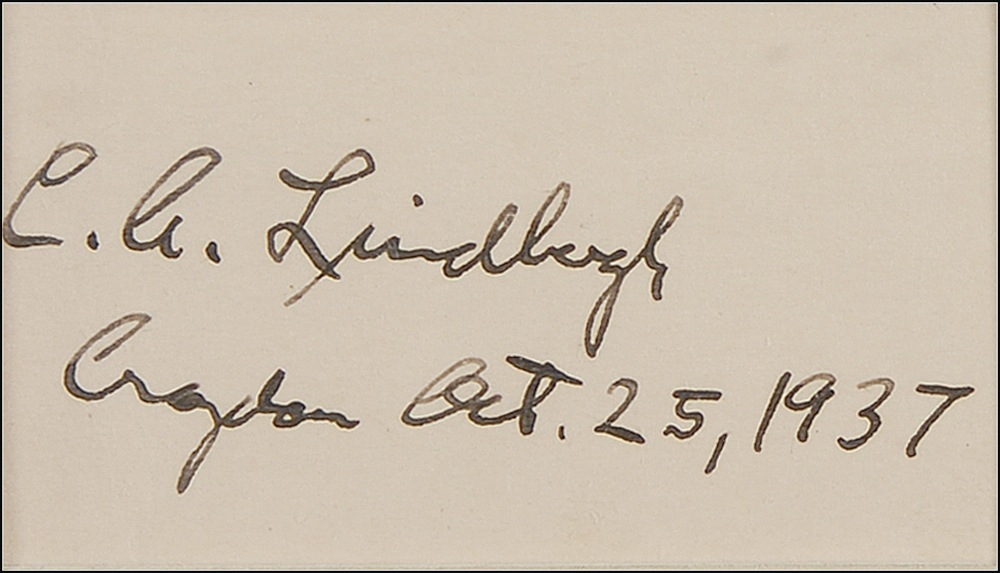 C. A. Lindbergh
Croydon Oct. 25, 1937